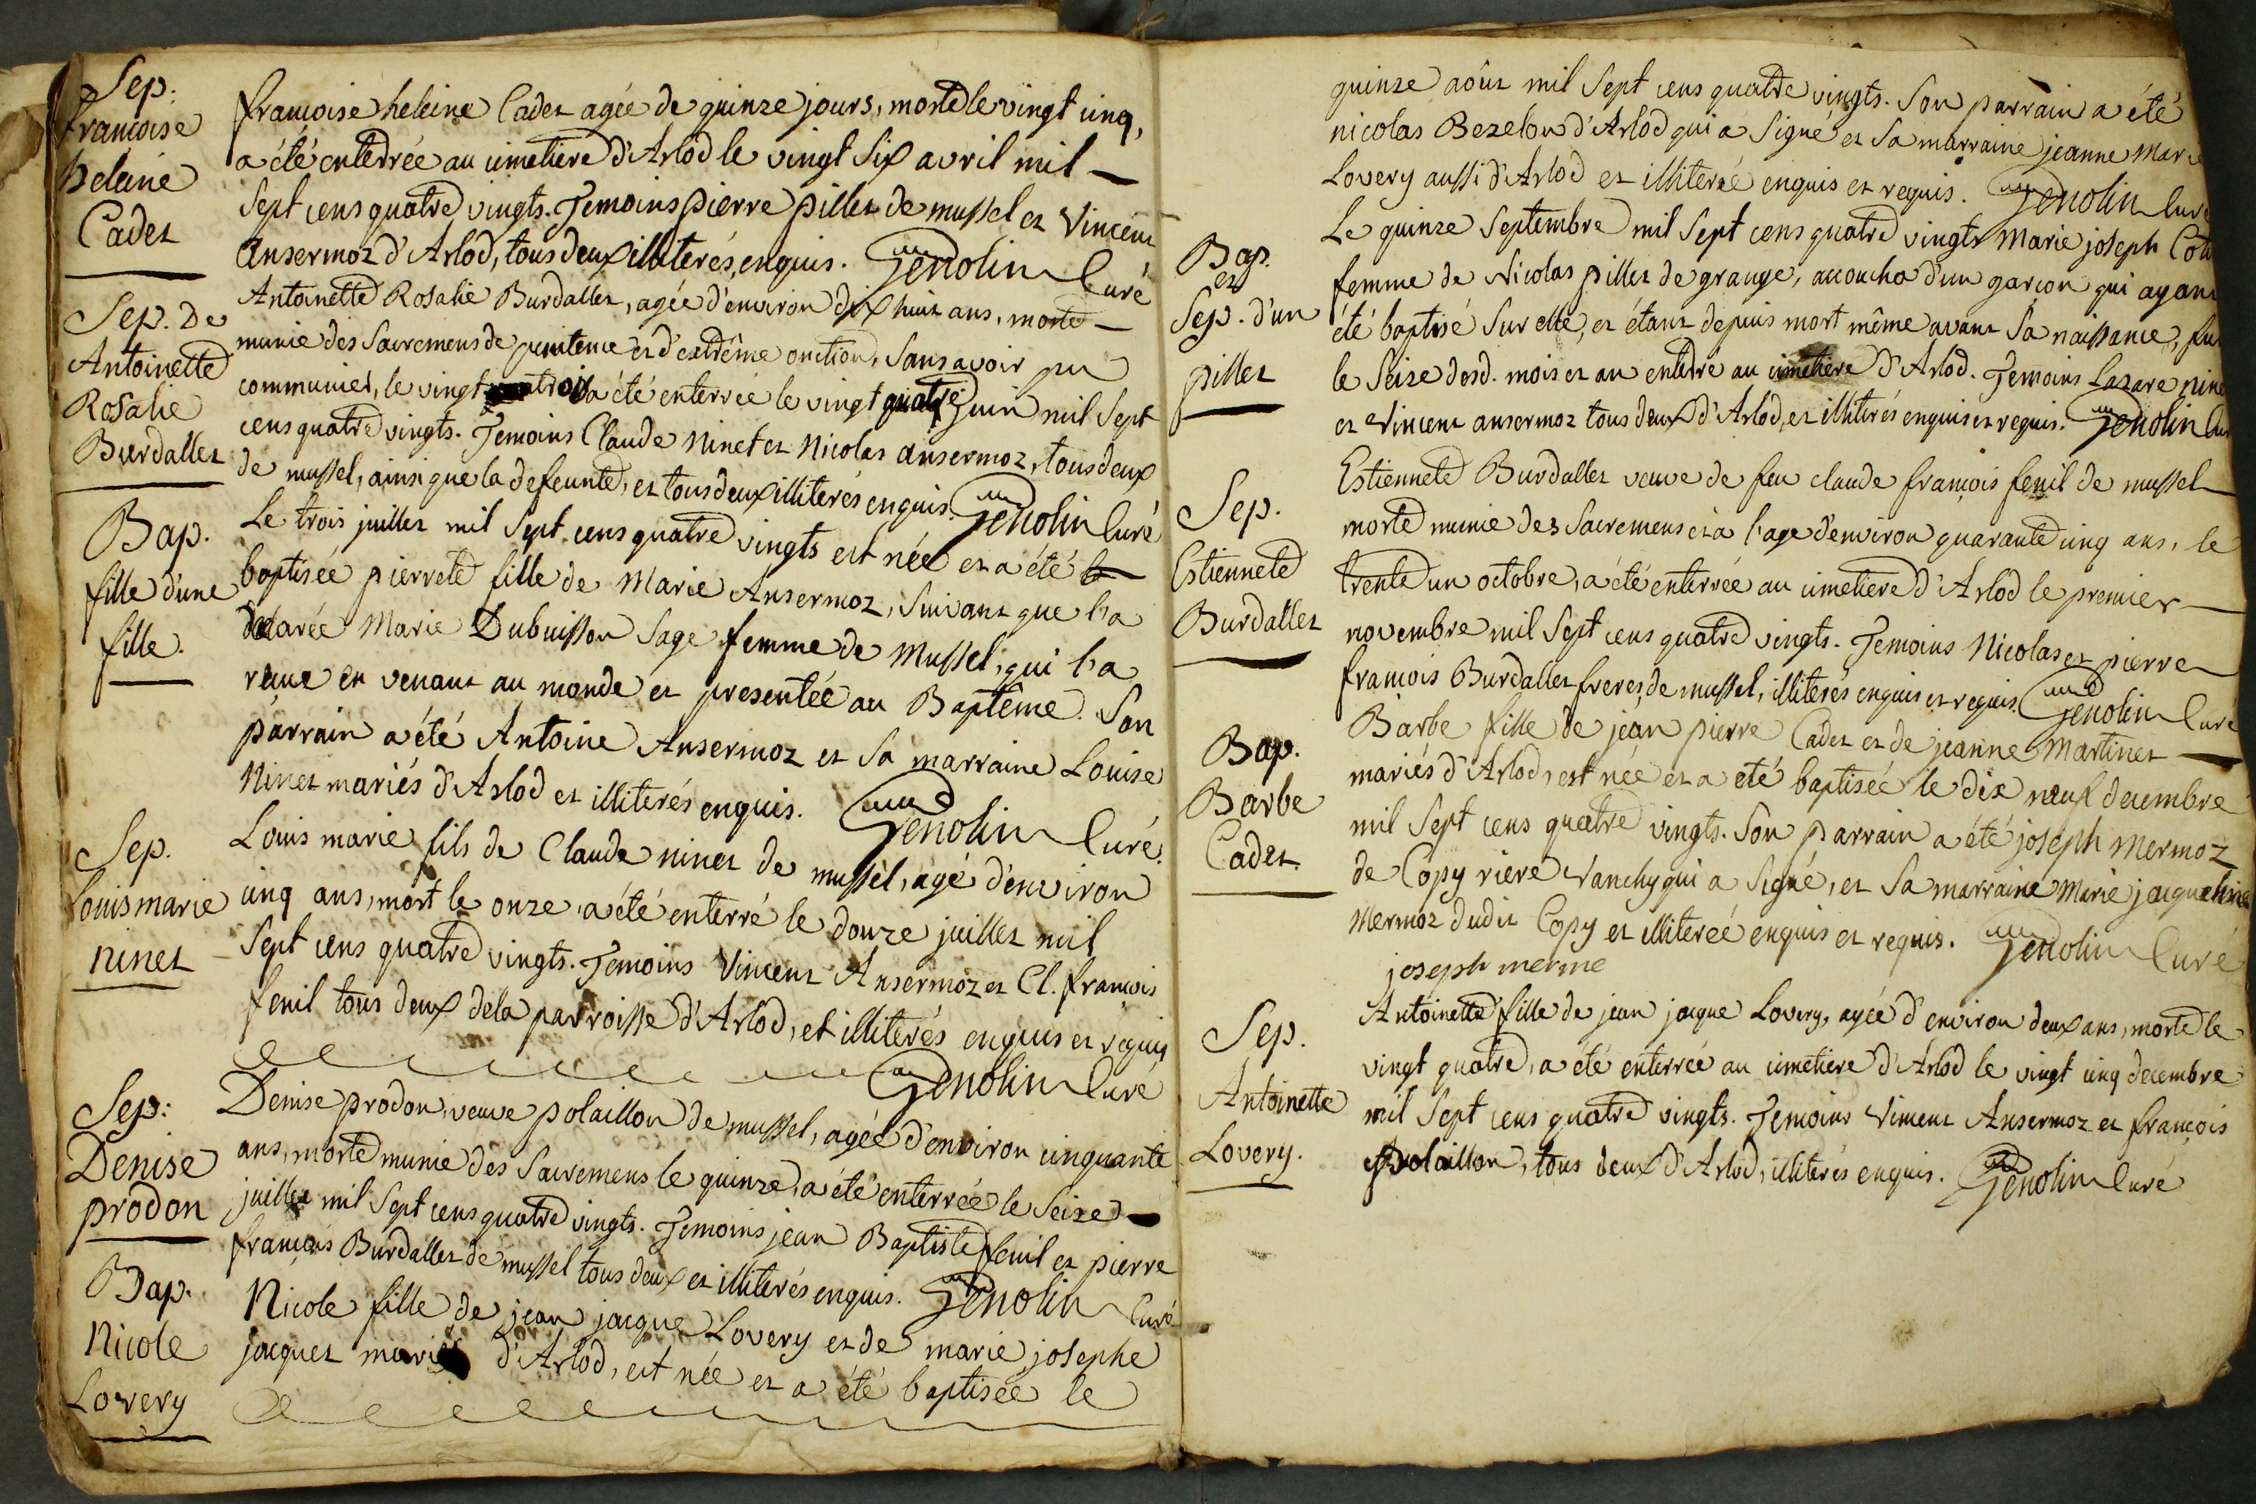 Sep.
francoise
heleine
Cadet
francoise heleine Cadet agée de quinze jours, morte le vingt cinq,
a été enterrée au cimetiere d'Arlod le vingt six avril mil
sept cens quatre vingts. Temoins pierre pillet de mussel et Vincent
Ansermoz d'Arlod, tous deux illiterés, enquis. Genolin Curé
Sep. De
Antoinette
Rosalie
Burdallet
Antoinette Rosalie Burdallet, agée d'environ dix huit ans, morte
munie des Sacremens de penitence et d'extrême onction, sans avoir pu
communier, le vingt trois a été enterrée le vingt quatre juin mil sept
cens quatre vingts. Temoins Claude Ninet et Nicolas ansermoz, tous deux
de mussel, ainsi que la defeunte, et tous deux illiterés enquis. Genolin Curé
Bap.
fille d'une
fille.
Le trois juillet mil sept cens quatre vingts est née et a été
baptisée pierrete fille de Marie Ansermoz, suivant que l'a
declarée Marie Dubuisson Sage femme de Mussel, qui l'a
reçue en venant au monde et presentée au Baptême. Son
parrain a été Antoine Ansermoz et sa marraine Louise
Ninet mariés d'Arlod et illiterés enquis. Genolin Curé.
Sep.
louis marie
ninet
Louis marie fils de Claude ninet de mussel, agé d'environ
cinq ans, mort le onze, a été enterré le douze juillet mil
sept cens quatre vingts. Temoins Vincent Ansermoz et Cl. francois
fenil tous deux de la parroisse d'Arlod, et illiterés enquis et requis
Genolin Curé
Sep:
Denise
prodon
Denise prodon, veuve polaillon de mussel, agée d'environ cinquante
ans, morte munie des Sacremens le quinze, a été enterrée le seize
juillet mil sept cens quatre vingts. Temoins jean Baptiste fenil et pierre
françois Burdallet de mussel tous deux et illiterés enquis. Genolin Curé
Bap.
Nicole
Lovery
Nicole fille de jean jacque Lovery et de marie josephe
jacquet mariés d'Arlod, est née et a été baptisée le
quinze aôut mil sept cens quatre vingts. Son parrain a été
nicolas Bezelon d'Arlod qui a signé et sa marraine jeanne Marie
Lovery aussi d'Arlod et illiterée enquis et requis. Genolin Curé
Bap.
et
Sep. d'un
pillet
Le quinze Septembre mil sept cens quatre vingts Marie joseph
femme de Nicolas pillet de grange, accoucha d'un garçon qui ayant
été baptisé sur elle, et étant depuis mort même avant sa naissance, fut
le seize desd. mois et an enterré au cimetiere d'Arlod. Temoins Lazare ninet
et Vincent ansermoz tous deux d'Arlod, et illiterés enquis et requis. Genolin Curé
Sep.
Estiennete
Burdallet
Estiennete Burdallet veuve de feu claude françois fenil de mussel
morte munie des Sacremens et a l'age d'environ quarante cinq ans, le
trente un octobre, a été enterrée au cimetiere d'Arlod le premier
novembre mil sept cens quatre vingts. Temoins Nicolas et pierre
francois Burdallet freres, de mussel, illiterés enquis et requis. Genolin Curé
Bap.
Barbe
Cadet
Barbe fille de jean pierre Cadet et de jeanne Martinet
mariés d'Arlod, est née et a eté baptisée le dix neuf decembre
mil sept cens quatre vingts. Son parrain a été joseph Mermoz
de Copy riere Vanchy qui a signé, et sa marraine Marie jacqueline
Mermoz dudit Copy et illiterée enquis et requis. Genolin Curé
joseph merme
Sep.
Antoinette
Lovery.
Antoinette fille de jean jacque Lovery, agée d'environ deux ans, morte le
vingt quatre, a été enterrée au cimetiere d'Arlod le vingt cinq decembre
mil sept cens quatre vingts. Temoins Vincent Ansermoz et françois
polaillon, tous deux d'Arlod, illiterés enquis. Genolin Curé